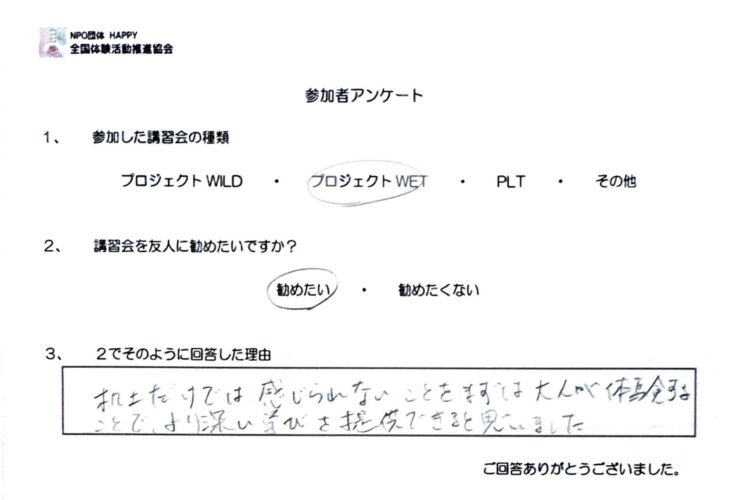 NPO団体 HAPPY
全国体験活動推進協会
参加者アンケート
1、 参加した講習会の種類
プロジェクト WILD ・ プロジェクト WET ・ PLT ・ その他
2、 講習会を友人に勧めたいですか？
勧めたい ・ 勧めたくない
3、 2でそのように回答した理由
机上だけでは感じられないことをまずは大人が体験する
ことで、より深い学びを提供できると思いました
ご回答ありがとうございました。